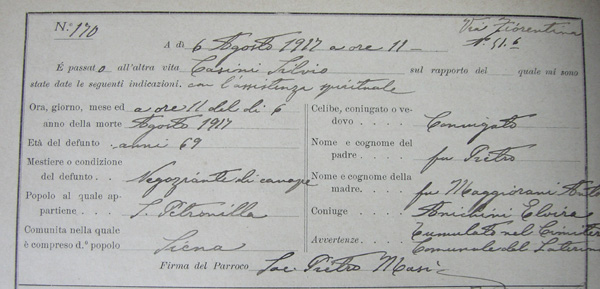 N.º 170
Via Fiorentina
Nº 51.6
A dì 6 Agosto 1917 a ore 11
È passato all'altra vita Casini Silvio sul rapporto del quale mi sono
state date le seguenti indicazioni. con l'assistenza spirituale
Ora, giorno, mese ed a ore 11 del dì 6
anno della morte Agosto 1917
Età del defunto anni 69
Mestiere o condizione
del defunto Negoziante di canape
Popolo al quale appartiene S. Petronilla
Comunita nella quale
è compreso d.º popolo Siena
Celibe, coniugato o vedovo Coniugato
Nome e cognome del
padre fu Pietro
Nome e cognome della
madre fu Maggiorani
Coniuge Anichini Elvira
Avvertenze. Tumulato nel Cimitero
Comunale del Laterino
Firma del Parroco Sac Pietro Masi